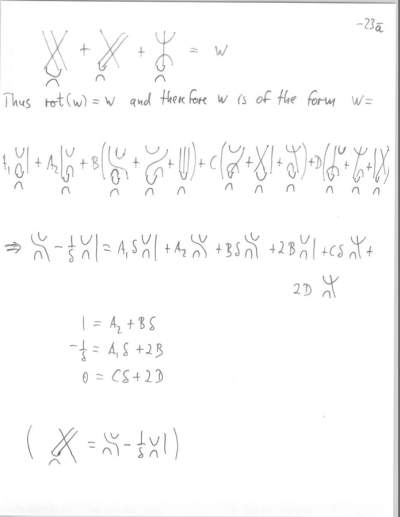 -23a̅
+ + = w
Thus rot(w) = w and therefore w is of the form w =
A₁ + A₂ + B( + + ) + C( + + ) + D( + + )
⇒ - 1/δ = A₁δ + A₂ + Bδ + 2B + Cδ +
2D
1 = A₂ + Bδ
-1/δ = A₁δ + 2B
0 = Cδ + 2D
( = - 1/δ )